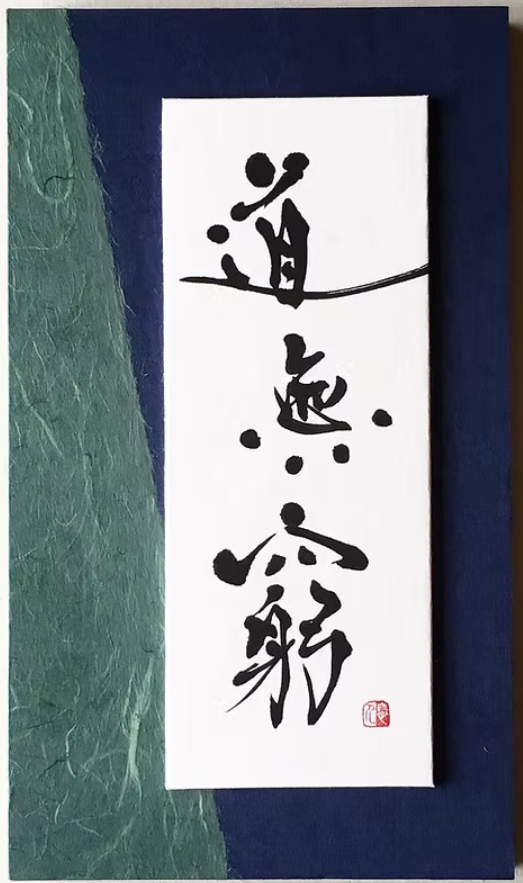 道無窮